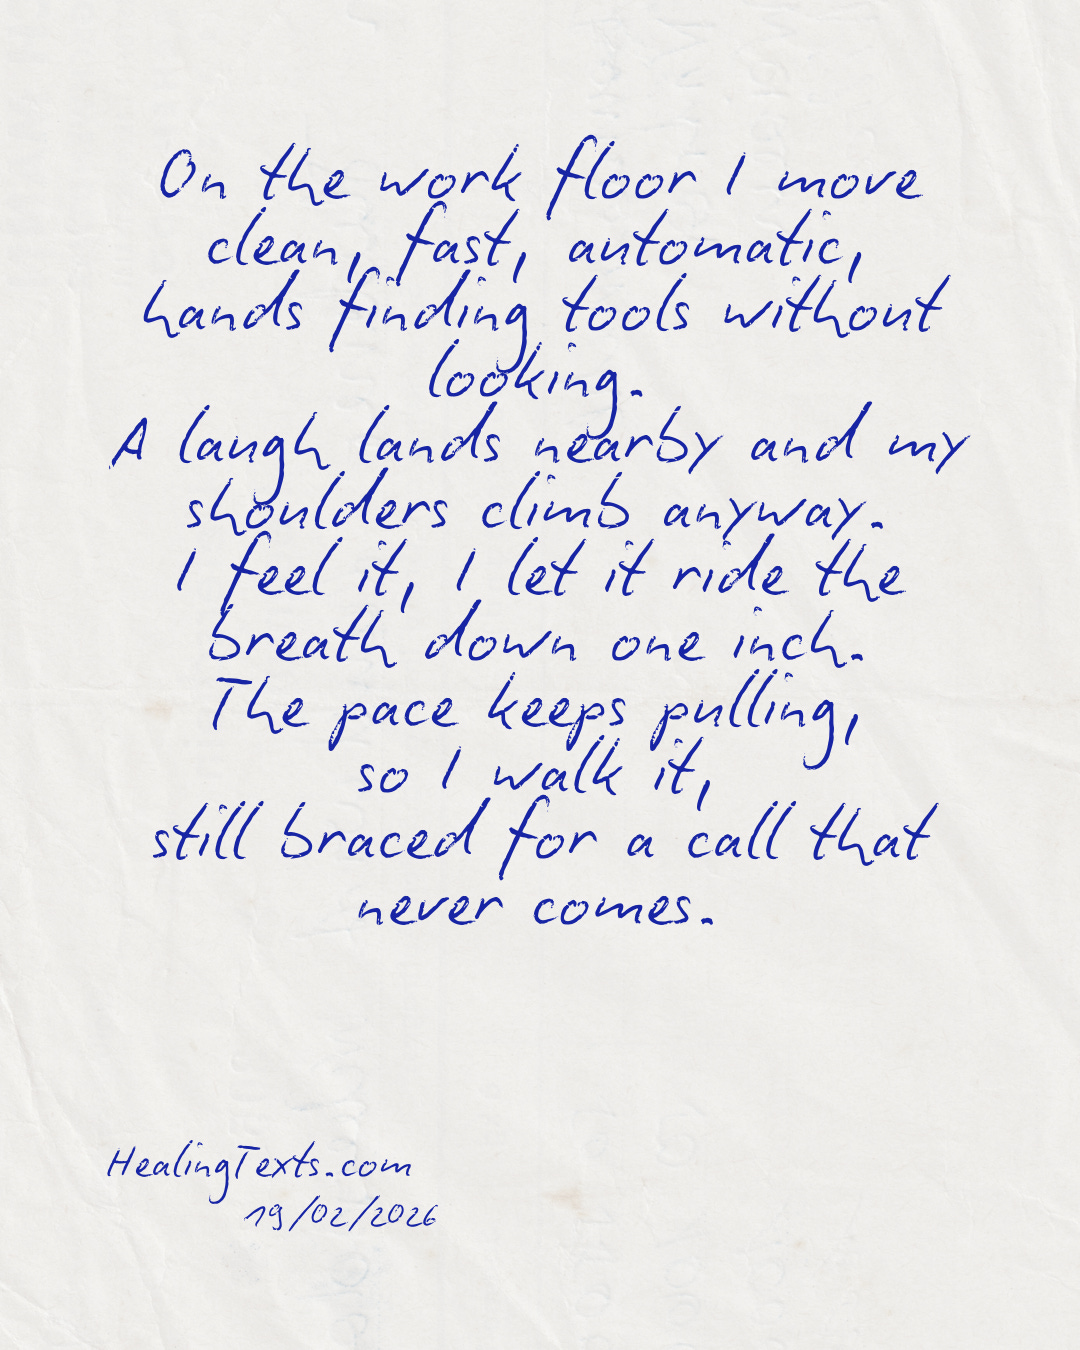 On the work floor I move
clean, fast, automatic,
hands finding tools without
looking.
A laugh lands nearby and my
shoulders climb anyway.
I feel it, I let it ride the
breath down one inch.
The pace keeps pulling,
so I walk it,
still braced for a call that
never comes.
HealingTexts.com
19/02/2026